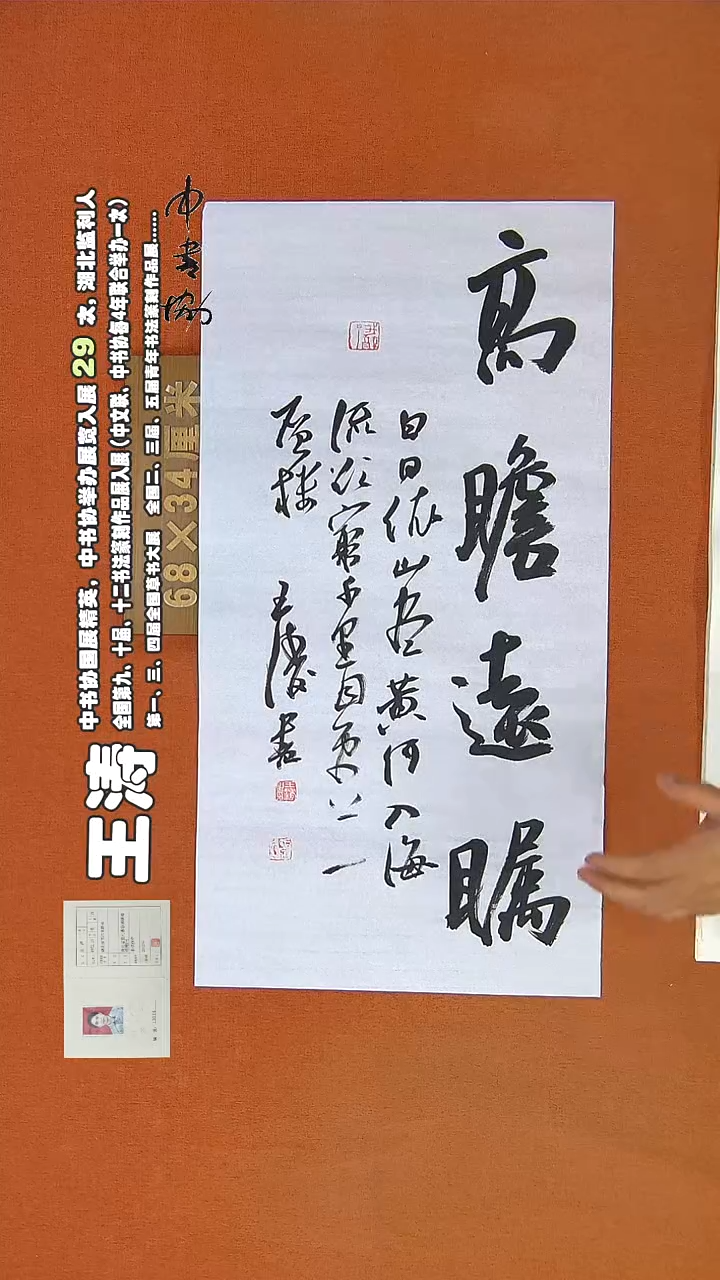 高瞻遠瞩
白日依山尽黄河入海
流欲穷千里目更上一
层楼
王涛书
中书协
68×34厘米
中书协国展精英，中书协举办展览入展 29 次，湖北监利人
全国第九、十届、十二书法篆刻作品展入展（中文联、中书协每4年联合举办一次）
第一、三、四届全国草书大展 全国二、三届、五届青年书法篆刻作品展……
王涛